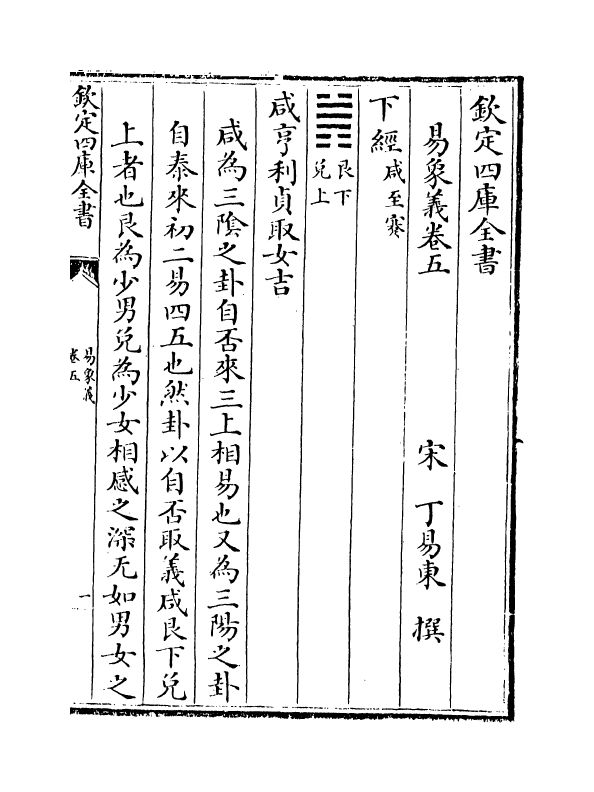 欽定四庫全書
易象義卷五
宋 丁易東 撰
下經咸至蹇
艮下
兌上
咸亨利貞取女吉
咸為三陰之卦自否來三上相易也又為三陽之卦
自泰來初二易四五也然卦以自否取義咸艮下兌
上者也艮為少男兌為少女相感之深无如男女之
欽定四庫全書
易象義
卷五
一